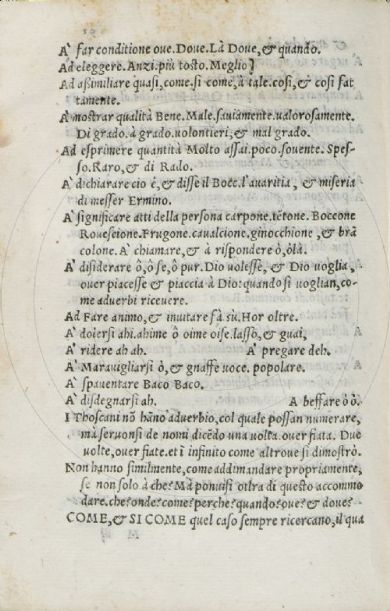 A' far conditione oue. Doue. Là Doue, & quando.
Ad eleggere. Anzi. più tosto. Meglio]
Ad aßimiliare quasi, come. si come, à tale. così, & così fat
tamente.
A mostrar qualità Bene. Male. sauiamente. ualorosamente.
Di grado. à grado. uolontieri, & mal grado.
Ad esprimere quantità Molto assai. poco. souente. Spes-
so. Raro, & di Rado.
A' dichiarare cio è, & disse il Bocc. l'auaritia, & miseria
di messer Ermino.
A' significare atti della persona carpone. tetone. Boccone
Rouescione. Frugone. caualcione. ginocchione, & brà
colone. A' chiamare, & à rispondere ò, ólà.
A' disiderare ò, ò se, ò pur. Dio uolesse, & Dio voglia,
ouer piacesse & piaccia à Dio: quando si uoglian, co-
me aduerbi riceuere.
Ad Fare animo, & inutare fà sù. Hor oltre.
A' dolersi ahi. ahime ò oime oise. lasso, & guai,
A' ridere ah ah. A' pregare deh.
A' Marauigliarsi ò, & gnaffe uoce. popolare.
A' spauentare Baco Baco.
A' disdegnarsi ah. A beffare ò ò.
I Thoscani nõ hãno aduerbio, col quale possan numerare,
mà seruonsi de nomi dicẽdo una uolta. ouer fiata. Due
uolte, ouer fiate. et i infinito come altroue si dimostrò.
Non hanno similmente, come addimandare propriamente,
se non solo à che? Mà ponuisi oltra di questo accommo
dare. che? onde? come? perche? quando? oue? & doue?
COME, & SI COME quel caso sempre ricercano, il qua